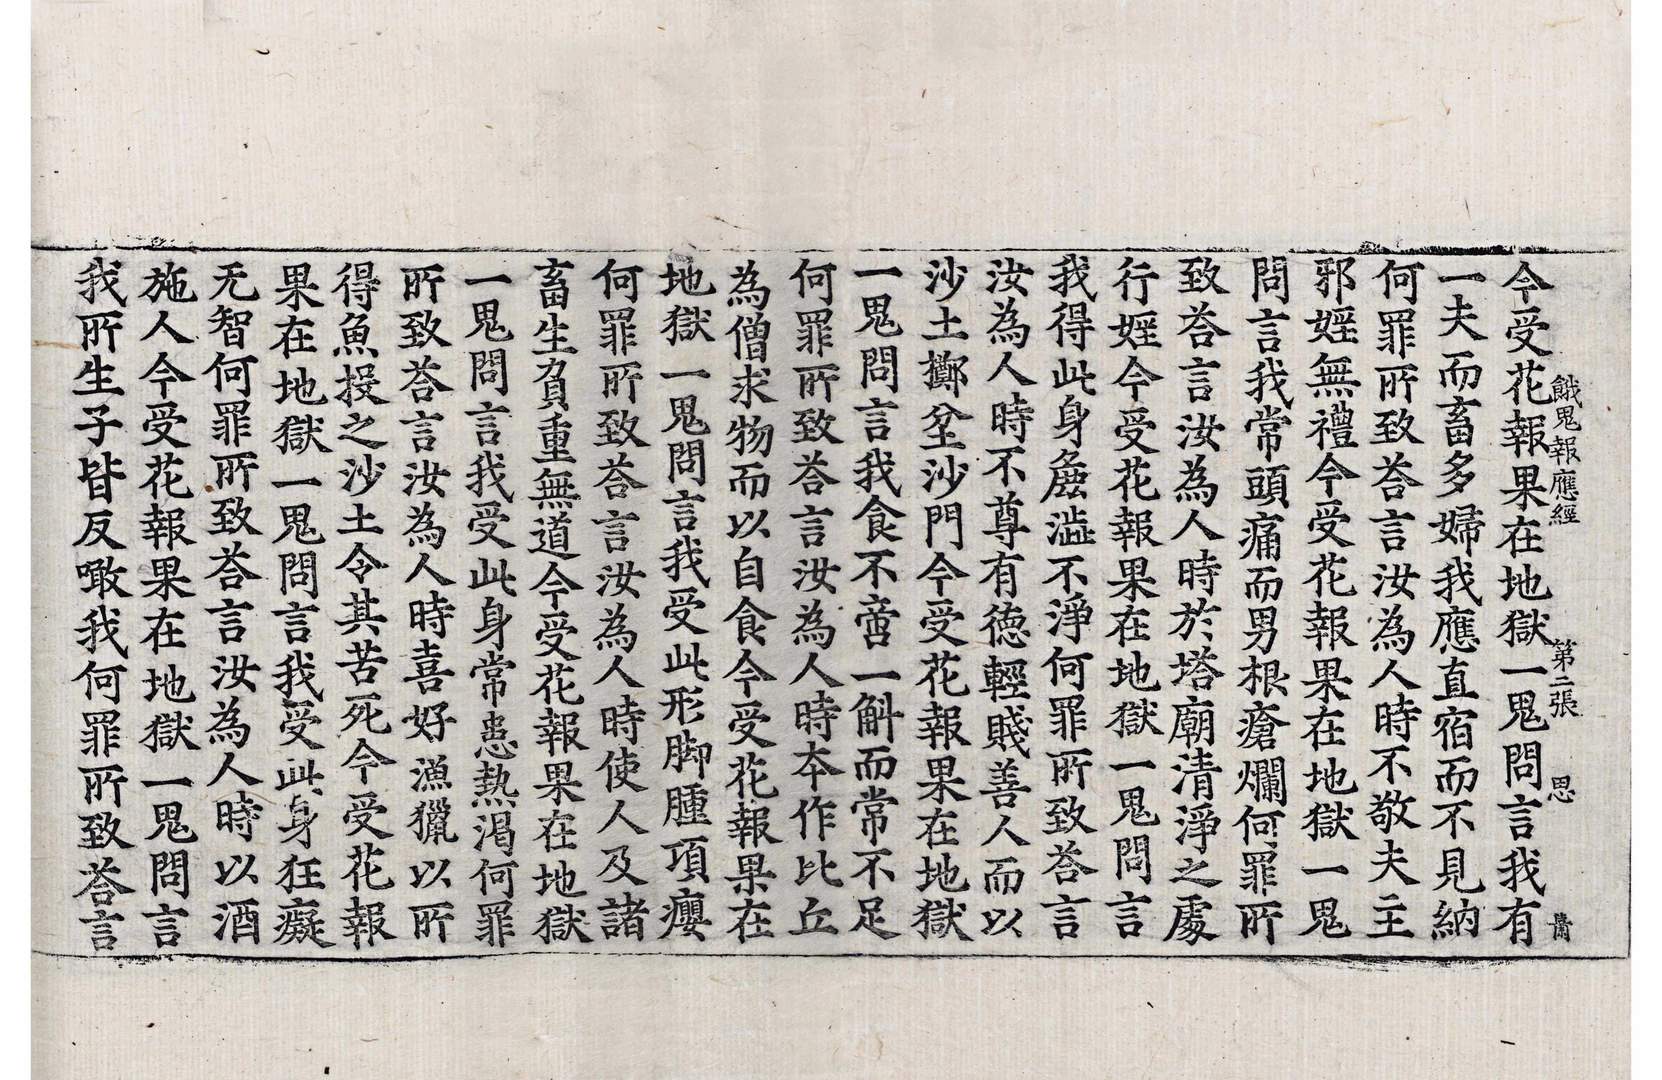 餓鬼報應經　第二張　思
今受花報果在地獄一鬼問言我有
一夫而畜多婦我應直宿而不見納
何罪所致荅言汝為人時不敬夫主
邪婬無禮今受花報果在地獄一鬼
問言我常頭痛而男根瘡爛何罪所
致荅言汝為人時於塔廟清淨之處
行婬今受花報果在地獄一鬼問言
我得此身麁澁不淨何罪所致荅言
汝為人時不尊有德輕賤善人而以
沙土擲坌沙門今受花報果在地獄
一鬼問言我食不啻一斛而常不足
何罪所致荅言汝為人時夲作比丘
為僧求物而以自食今受花報果在
地獄一鬼問言我受此形脚腫項癭
何罪所致荅言汝為人時使人及諸
畜生負重無道今受花報果在地獄
一鬼問言我受此身常患熱渴何罪
所致荅言汝為人時喜好漁獵以所
得魚投之沙土令其苦死今受花報
果在地獄一鬼問言我受此身狂癡
无智何罪所致荅言汝為人時以酒
施人今受花報果在地獄一鬼問言
我所生子皆反噉我何罪所致荅言